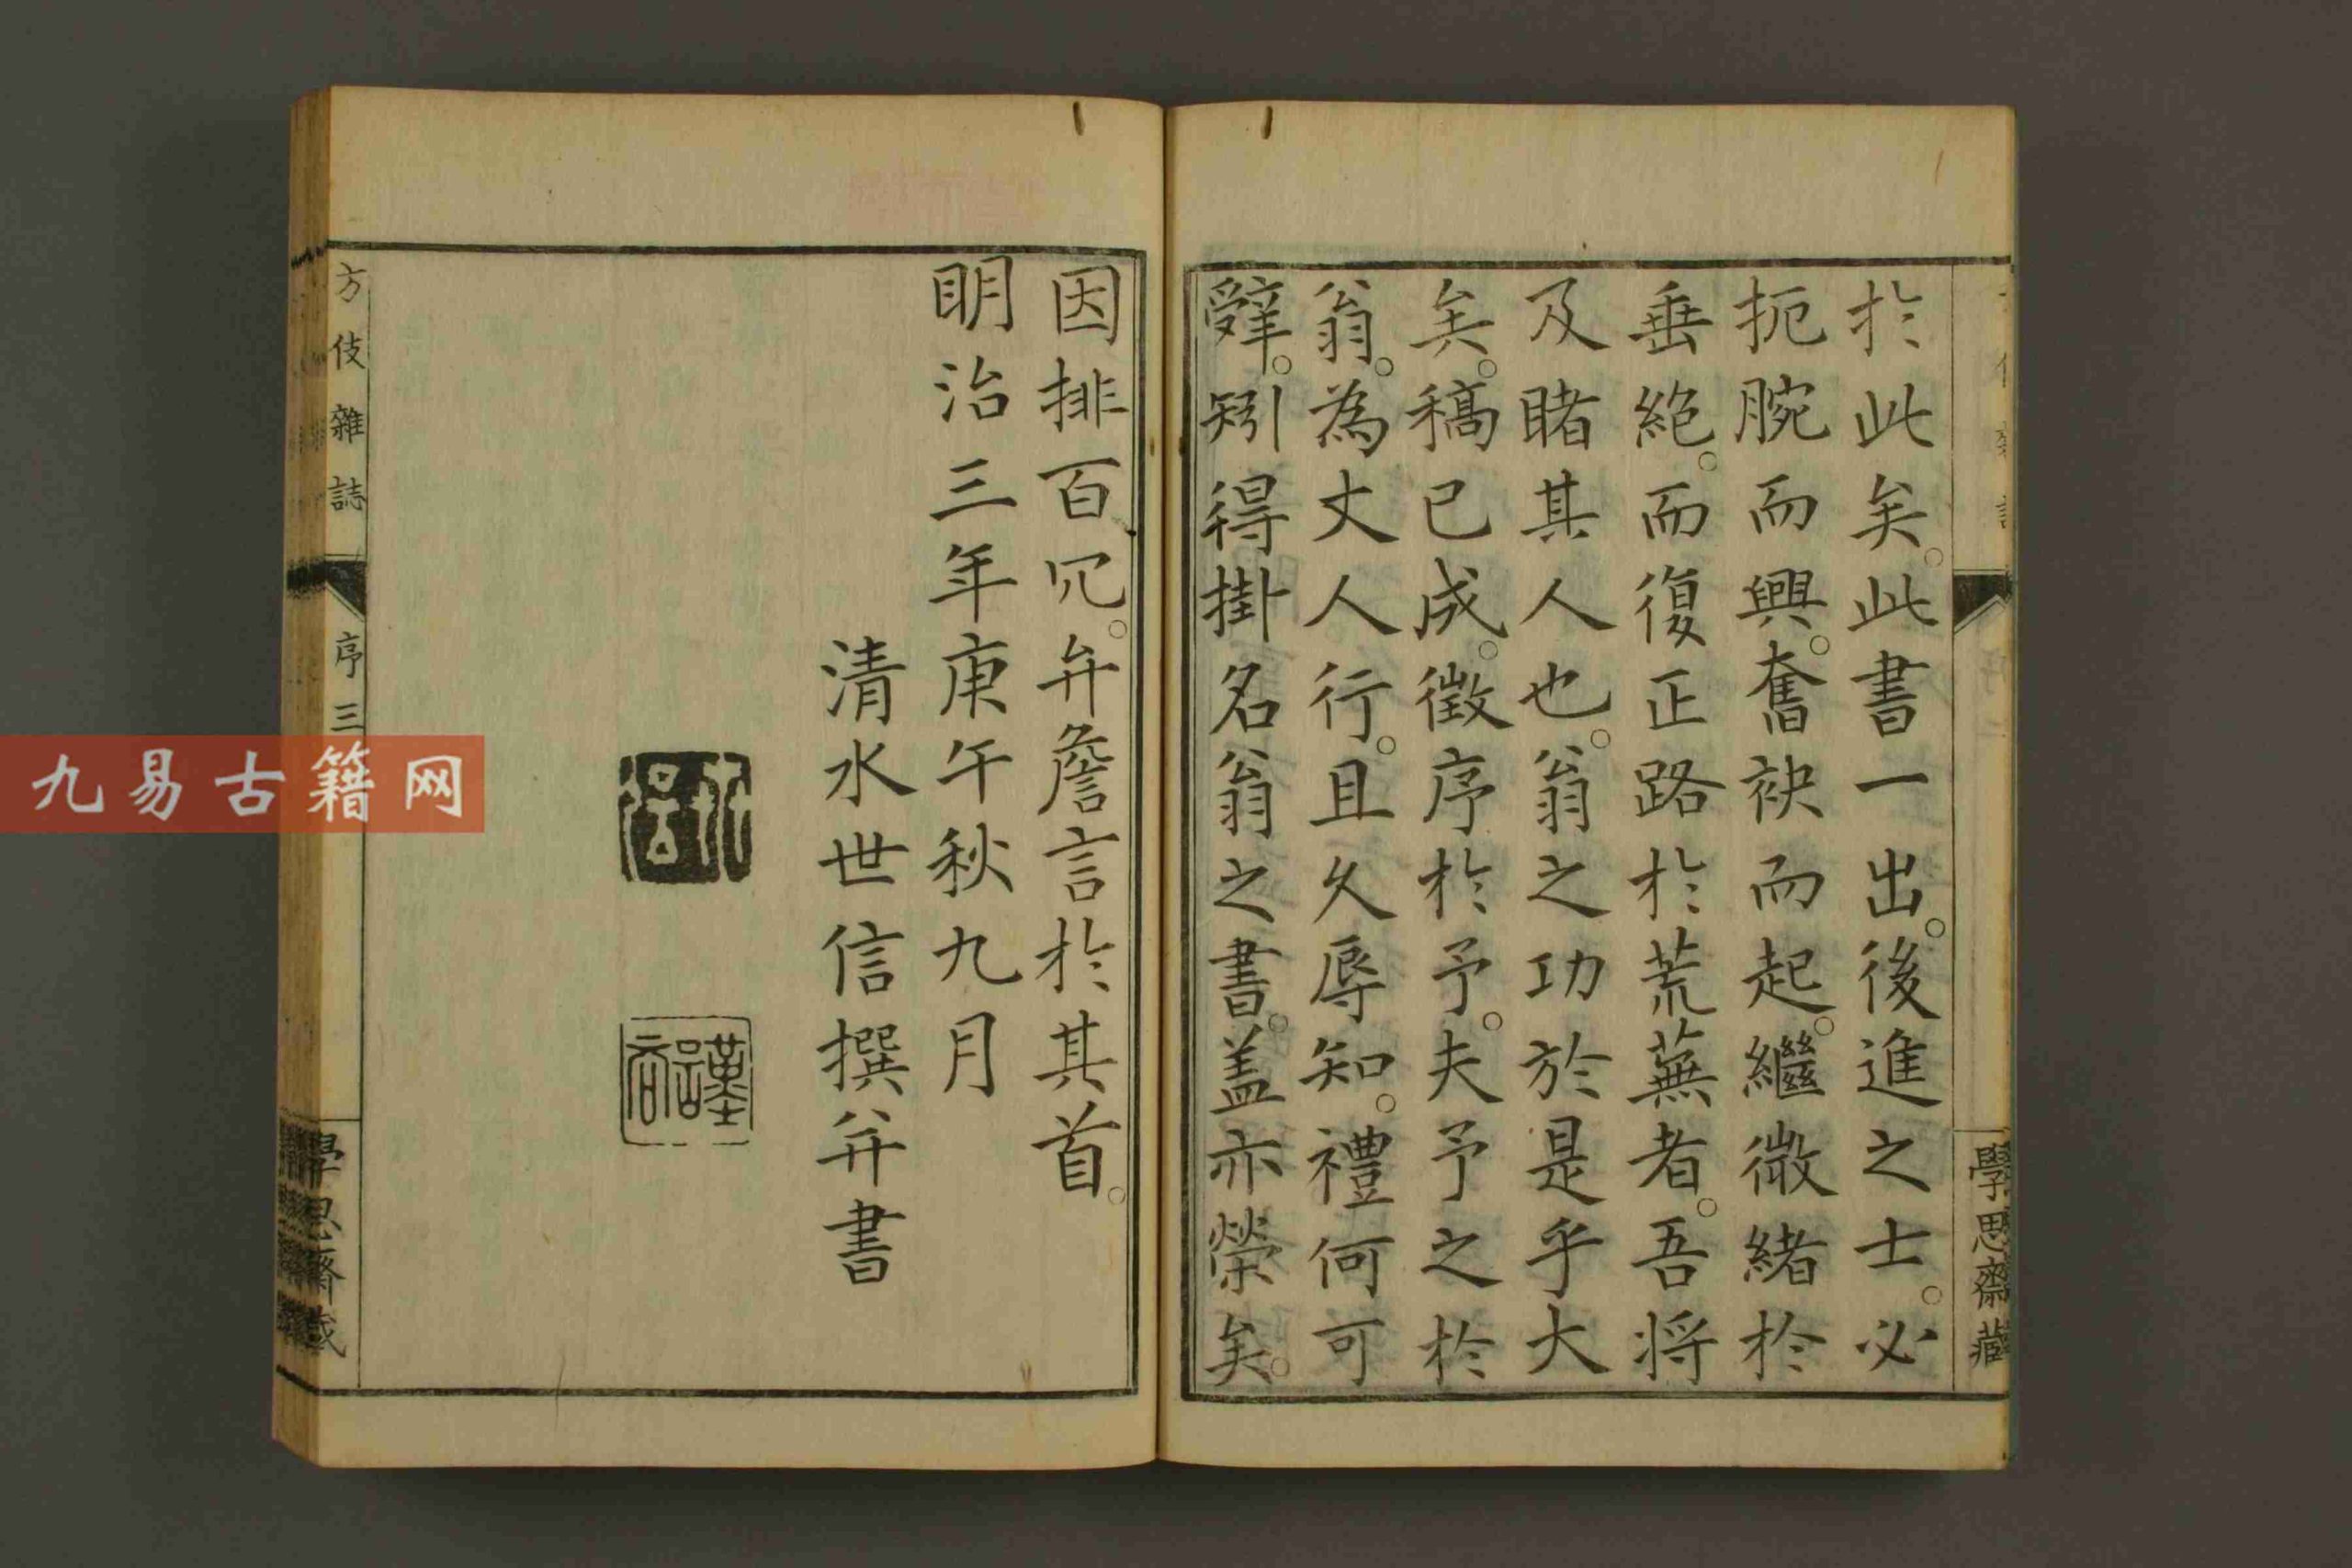 於此矣。此書一出。後進之士。必
扼腕而興。奮袂而起。繼微緒於
垂絶。而復正路於荒蕪者。吾将
及睹其人也。翁之功於是乎大
矣。稿已成。徵序於予。夫予之於
翁。為丈人行。且久辱知。禮何可
辤。矧得掛名翁之書。盖亦榮矣。
學思齋藏
因排百冗。弁詹言於其首。
明治三年庚午秋九月
清水世信撰并書
方伎雜誌
序三
學思齋藏
九易古籍网